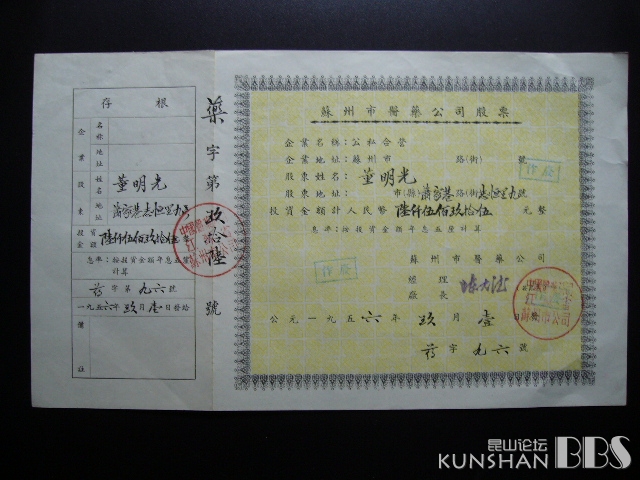 存 根
企業
名称
地址
股東
姓名 董明光
地址
投資金額 陸仟伍佰玖拾伍
息率：按投資金額年息五厘計算
药 字 第 九六 號
一九五六年玖月壹日補給
備註
藥字第玖拾陸號
蘇州市醫藥公司股票
企業名稱：公私合营
企業地址：蘇州市 路(街) 號
股東姓名：董明光
股東地址： 市(縣) 路(街) 號
投資金額計人民幣 陸仟伍佰玖拾伍 元整
息率：按投資金額年息五厘計算
蘇州市醫藥公司
經理
廠長
公元一九五六年玖月壹日
药字九六號
作废
作废
昆山论坛
KUNSHAN BBS